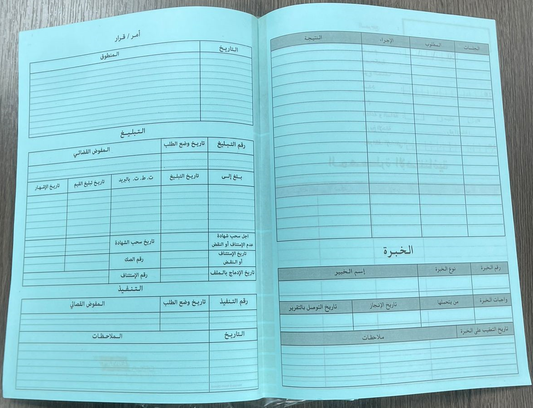 الجلسات المطلوب الإجراء النتيجة
الخبرة
رقم الخبرة نوع الخبرة إسم الخبير
واجبات الخبرة من يتحملها تاريخ الإنجاز تاريخ التوصل بالتقرير
تاريخ التعقيب على الخبرة ملاحظات
أمر / قرار
التاريخ المنطوق
التبليغ
رقم التبليغ تاريخ وضع الطلب المفوض القضائي
بلغ إلى تاريخ التبليغ ت. ط. ت. بالبريد تاريخ تبليغ القيم تاريخ الإشهار
اجل سحب شهادة
عدم الإستئناف أو النقض تاريخ سحب الشهادة
تاريخ الإستئناف
أو النقض رقم الصك
تاريخ الإدماج بالملف رقم الإستئناف
التنفيذ
رقم التنفيذ تاريخ وضع الطلب المفوض القضائي
التاريخ الملاحظات